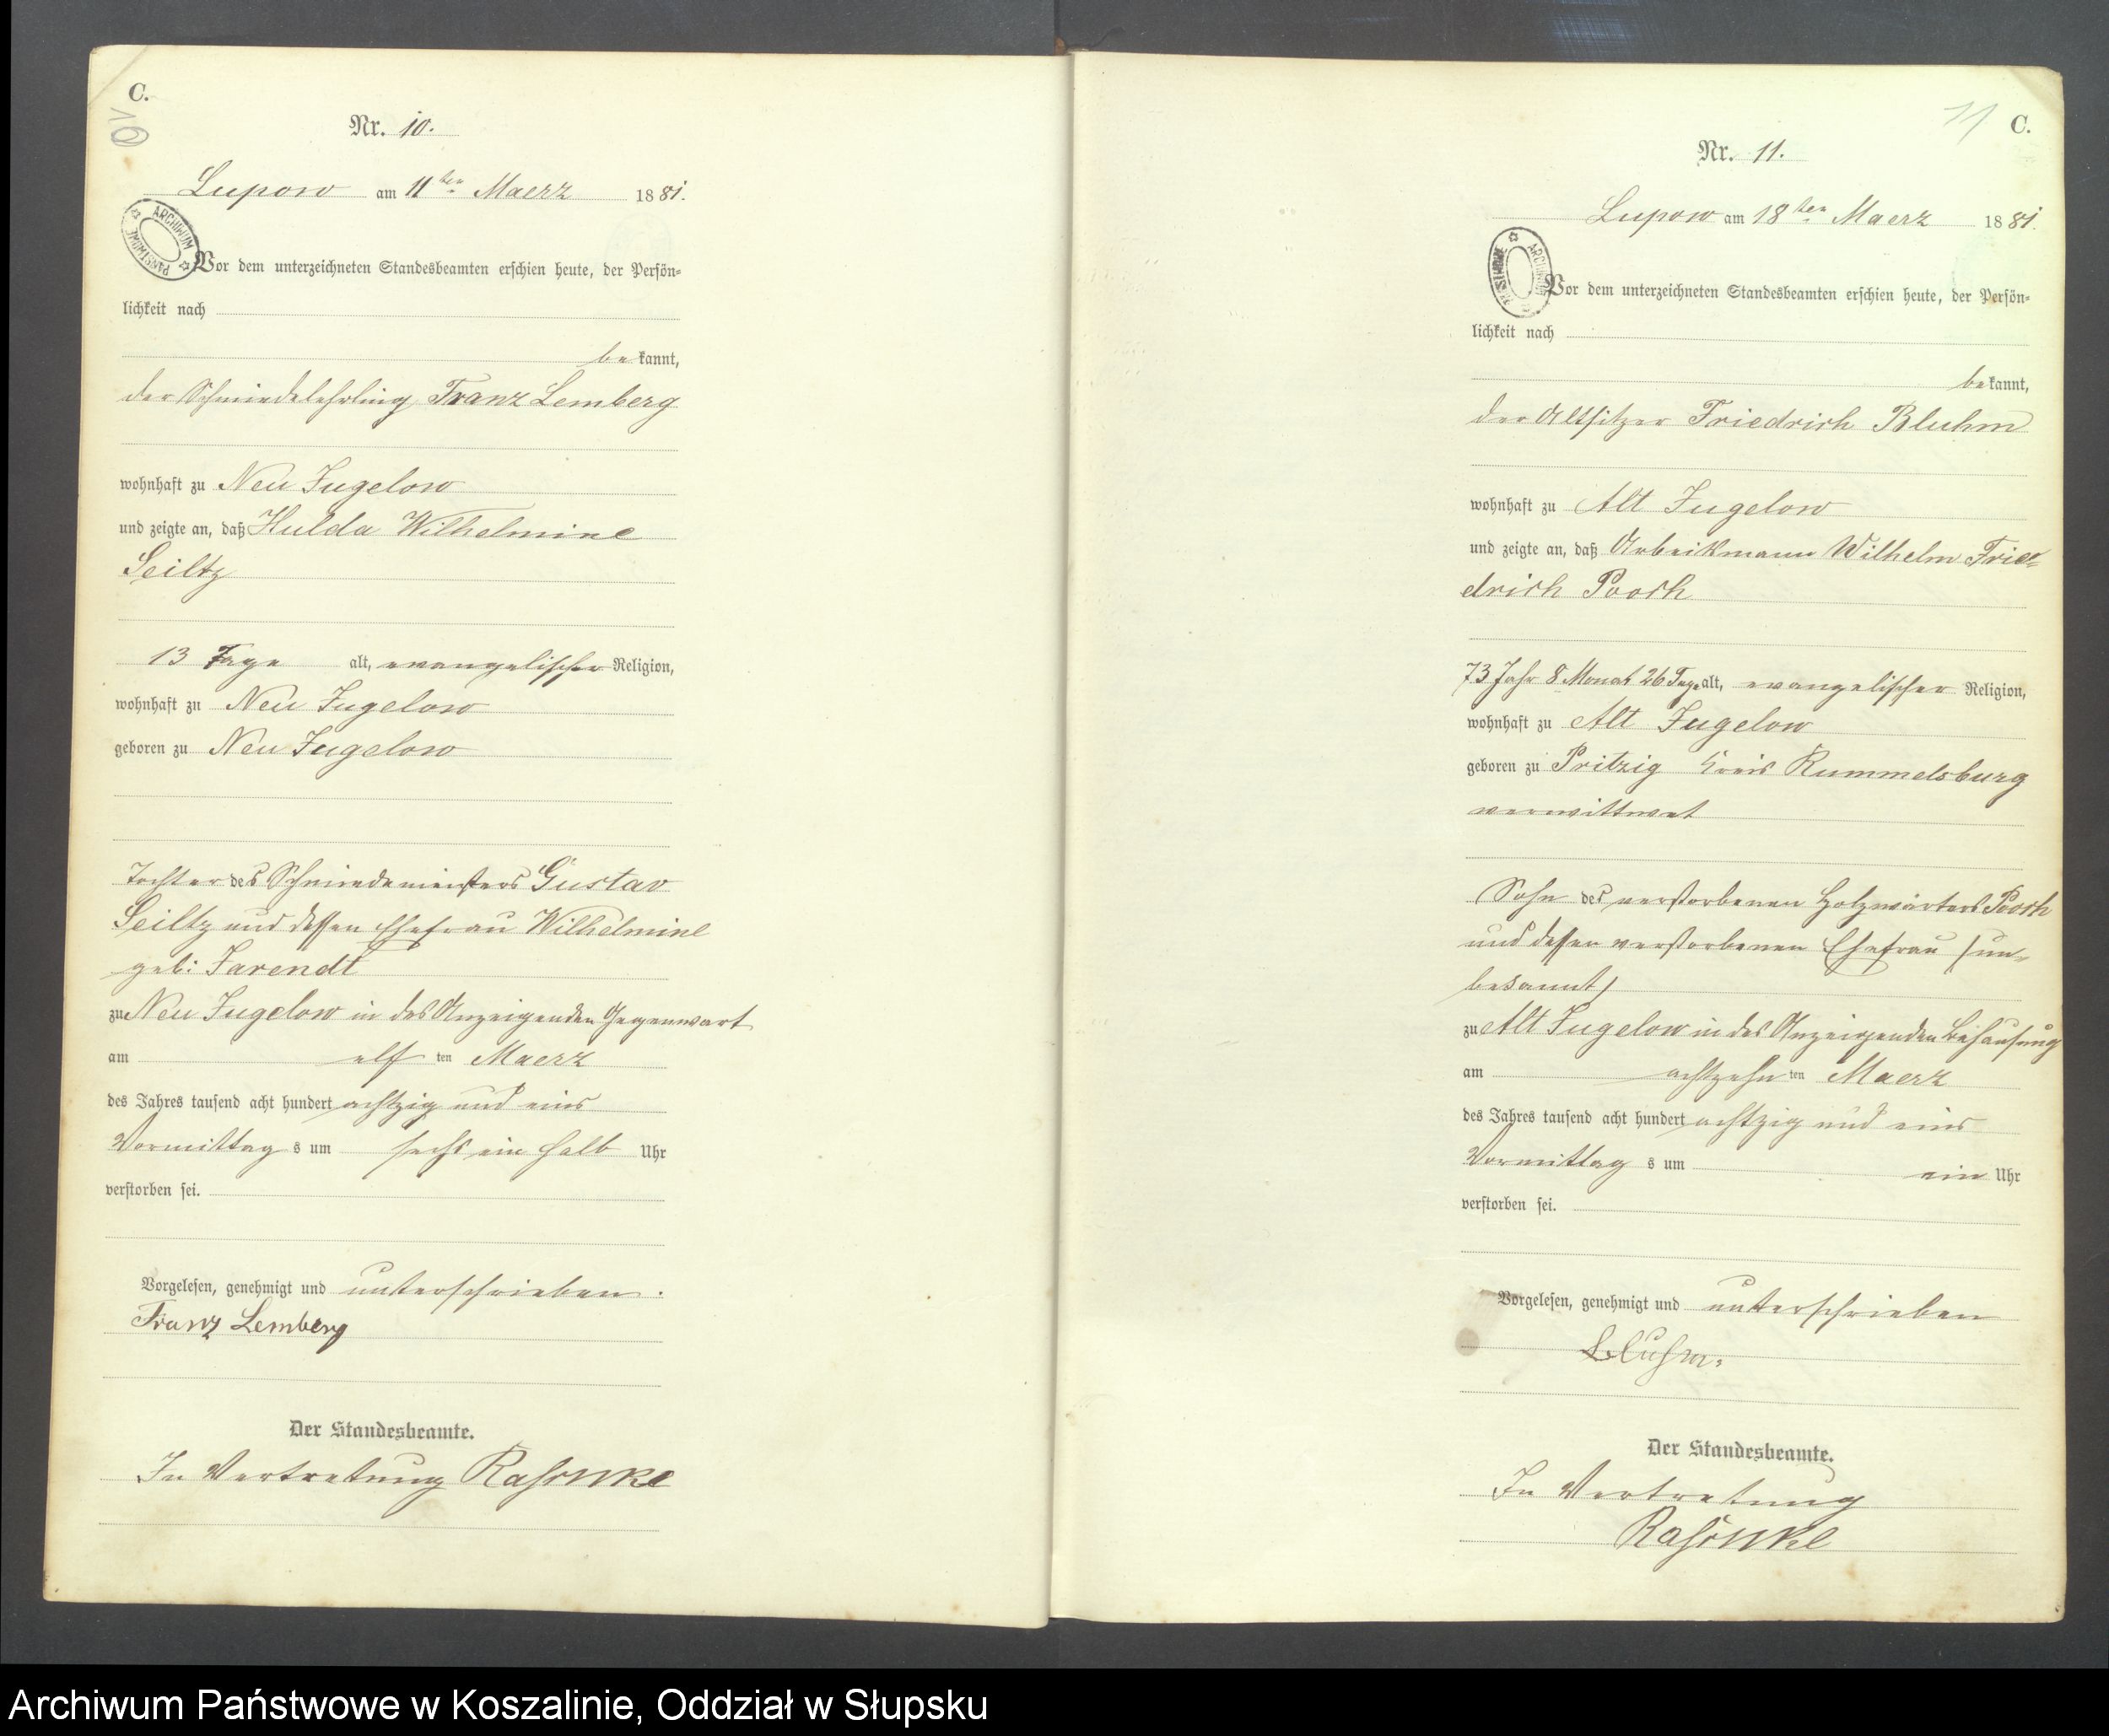 C.
10
Nr. 10.
Lupow am 11ten Maerz 1881.
ARCHIWUM PAŃSTWOWE
Vor dem unterzeichneten Standesbeamten erschien heute, der Persön-
lichkeit nach
bekannt,
der Schmiedelehrling Franz Lemberg
wohnhaft zu Neu Jugelow
und zeigte an, daß Hulda Wilhelmine
Seiltz
13 Tage alt, evangelischer Religion,
wohnhaft zu Neu Jugelow
geboren zu Neu Jugelow
Tochter des Schmiedemeisters Gustav
Seiltz und dessen Ehefrau Wilhelmine
geb: Jarendt
zu Neu Jugelow in des Anzeigenden Gegenwart
am elf ten Maerz
des Jahres tausend acht hundert achtzig und eins
Vormittag s um sechs ein halb Uhr
verstorben sei.
Vorgelesen, genehmigt und unterschrieben.
Franz Lemberg
Der Standesbeamte.
In Vertretung
11
C.
Nr. 11.
Lupow am 18ten Maerz 1881.
ARCHIWUM PAŃSTWOWE
Vor dem unterzeichneten Standesbeamten erschien heute, der Persön-
lichkeit nach
bekannt,
der Altsitzer Friedrich Bluhm
wohnhaft zu Alt Jugelow
und zeigte an, daß Arbeitsmann Wilhelm Frie-
drich Pooch
73 Jahr 8 Monat 26 Tage alt, evangelischer Religion,
wohnhaft zu Alt Jugelow
geboren zu Pritzig Kreis Rummelsburg
verwittwet
Sohn des verstorbenen Holzwärters Pooch
und dessen verstorbenen Ehefrau (un-
bekannt)
zu Alt Jugelow in des Anzeigenden Behausung
am achtzehn ten Maerz
des Jahres tausend acht hundert achtzig und eins
Vormittag s um ein Uhr
verstorben sei.
Vorgelesen, genehmigt und unterschrieben
Bluhm.
Der Standesbeamte.
In Vertretung
Archiwum Państwowe w Koszalinie, Oddział w Słupsku